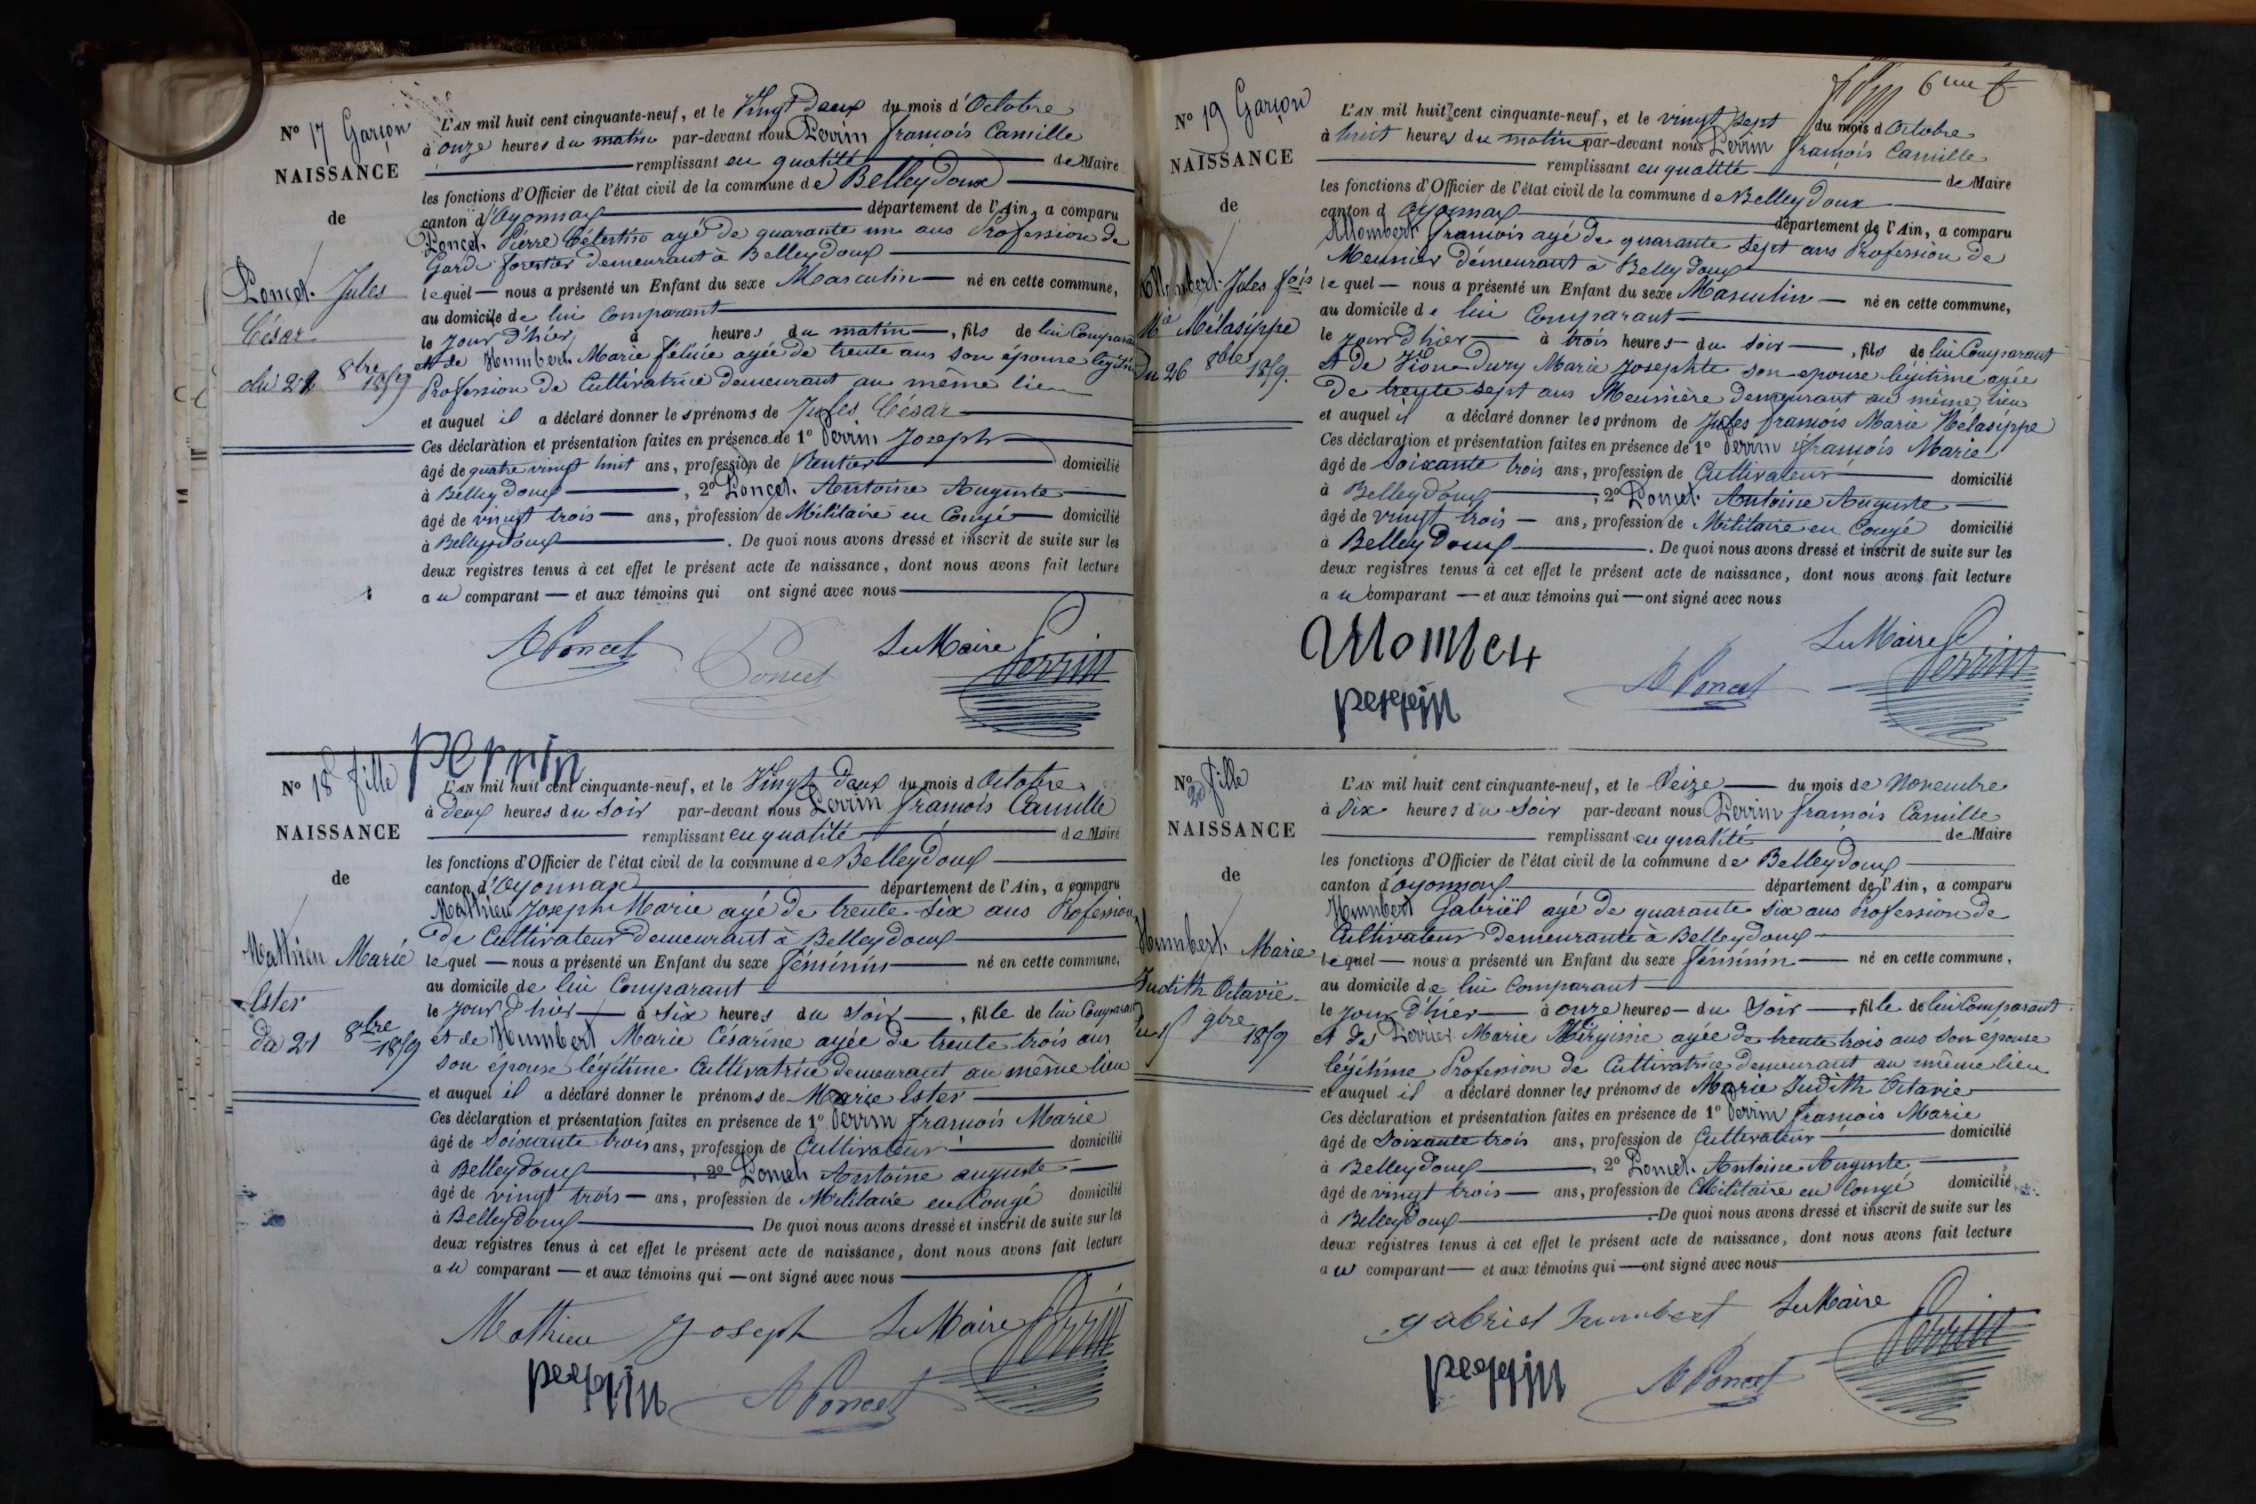 N° 17 Garçon
NAISSANCE
de
Poncet Jules
César
du 21 8bre 1859
L'AN mil huit cent cinquante-neuf, et le Vingt deux du mois d'Octobre
à onze heures du matin par-devant nous Perrin françois Camille
remplissant en qualité de Maire
les fonctions d'Officier de l'état civil de la commune de Belleydoux
canton d'Oyonnax département de l'Ain, a comparu
Poncet Pierre Célestin agé de quarante un ans Profession de
Garde forestier demeurant à Belleydoux
lequel nous a présenté un Enfant du sexe Masculin né en cette commune,
au domicile de lui Comparant
le jour d'hier à heures du matin, fils de lui Comparant
et de Humbert Marie féline agée de trente ans son épouse légitime
Profession de Cultivatrice demeurant au même lieu
et auquel il a déclaré donner les prénoms de Jules César
Ces déclaration et présentation faites en présence de 1° Perrin Joseph
âgé de quatre vingt huit ans, profession de Rentier domicilié
à Belleydoux, 2° Poncet Antoine Auguste
âgé de vingt trois ans, profession de Militaire en Congé domicilié
à Belleydoux. De quoi nous avons dressé et inscrit de suite sur les
deux registres tenus à cet effet le présent acte de naissance, dont nous avons fait lecture
au comparant et aux témoins qui ont signé avec nous
A Poncet Poncet Le Maire Perrin
perrin
N° 18 fille
NAISSANCE
de
Mathieu Marie
Ester
du 21 8bre 1859
L'AN mil huit cent cinquante-neuf, et le Vingt deux du mois d'Octobre
à deux heures du soir par-devant nous Perrin françois Camille
remplissant en qualité de Maire
les fonctions d'Officier de l'état civil de la commune de Belleydoux
canton d'Oyonnax département de l'Ain, a comparu
Mathieu Joseph Marie agé de trente six ans Profession
de Cultivateur demeurant à Belleydoux
lequel nous a présenté un Enfant du sexe féminin né en cette commune,
au domicile de lui Comparant
le jour d'hier à six heures du soir, fille de lui Comparant
et de Humbert Marie Césarine agée de trente trois ans
son épouse légitime Cultivatrice demeurant au même lieu
et auquel il a déclaré donner le prénoms de Marie Ester
Ces déclaration et présentation faites en présence de 1° Perrin françois Marie
âgé de soixante trois ans, profession de Cultivateur domicilié
à Belleydoux, 2° Poncet Antoine auguste
âgé de vingt trois ans, profession de Militaire en Congé domicilié
à Belleydoux De quoi nous avons dressé et inscrit de suite sur les
deux registres tenus à cet effet le présent acte de naissance, dont nous avons fait lecture
au comparant et aux témoins qui ont signé avec nous
Mathieu Joseph Le Maire Perrin
perrin A Poncet
6me f
N° 19 Garçon
NAISSANCE
de
Allombert Jules fois
Mie Mélasippe
Du 26 8bre 1859.
L'AN mil huit cent cinquante-neuf, et le vingt sept du mois d'Octobre
à huit heures du matin par-devant nous Perrin françois Camille
remplissant en qualité de Maire
les fonctions d'Officier de l'état civil de la commune de Belleydoux
canton d Oyonnax département de l'Ain, a comparu
Allombert françois agé de quarante sept ans Profession de
Meunier demeurant à Belleydoux
lequel nous a présenté un Enfant du sexe Masculin né en cette commune,
au domicile de lui Comparant
le jour d'hier à trois heures du soir, fils de lui Comparant
et de Vion-Dury Marie Josephte son épouse légitime agée
de trente sept ans Meunière demeurant au même lieu
et auquel il a déclaré donner les prénom de Jules françois Marie Mélasippe
Ces déclaration et présentation faites en présence de 1° Perrin françois Marie
âgé de soixante trois ans, profession de Cultivateur domicilié
à Belleydoux, 2° Poncet Antoine Auguste
âgé de vingt trois ans, profession de Militaire en Congé domicilié
à Belleydoux. De quoi nous avons dressé et inscrit de suite sur les
deux registres tenus à cet effet le présent acte de naissance, dont nous avons fait lecture
au comparant et aux témoins qui ont signé avec nous
Le Maire Perrin
perrin A Poncet
N° 20 fille
NAISSANCE
de
Humbert Marie
Judith Octavie
du 15 9bre 1859
L'AN mil huit cent cinquante-neuf, et le Seize du mois de Novembre
à six heures du soir par-devant nous Perrin françois Camille
remplissant en qualité de Maire
les fonctions d'Officier de l'état civil de la commune de Belleydoux
canton d'oyonnax département de l'Ain, a comparu
Humbert Gabriël agé de quarante six ans Profession de
Cultivateur demeurante à Belleydoux
lequel nous a présenté un Enfant du sexe féminin né en cette commune,
au domicile de lui Comparant
le jour d'hier à onze heures du soir, fille de lui Comparant
et de Perrier Marie Virginie agée de trente trois ans son épouse
légitime Profession de Cultivatrice demeurant au même lieu
et auquel il a déclaré donner les prénoms de Marie Judith Octavie
Ces déclaration et présentation faites en présence de 1° Perrin françois Marie
âgé de soixante trois ans, profession de Cultivateur domicilié
à Belleydoux, 2° Poncet Antoine Auguste
âgé de vingt trois ans, profession de Militaire en Congé domicilié
à Belleydoux. De quoi nous avons dressé et inscrit de suite sur les
deux registres tenus à cet effet le présent acte de naissance, dont nous avons fait lecture
au comparant et aux témoins qui ont signé avec nous
gabriel humbert Le Maire Perrin
perrin A Poncet